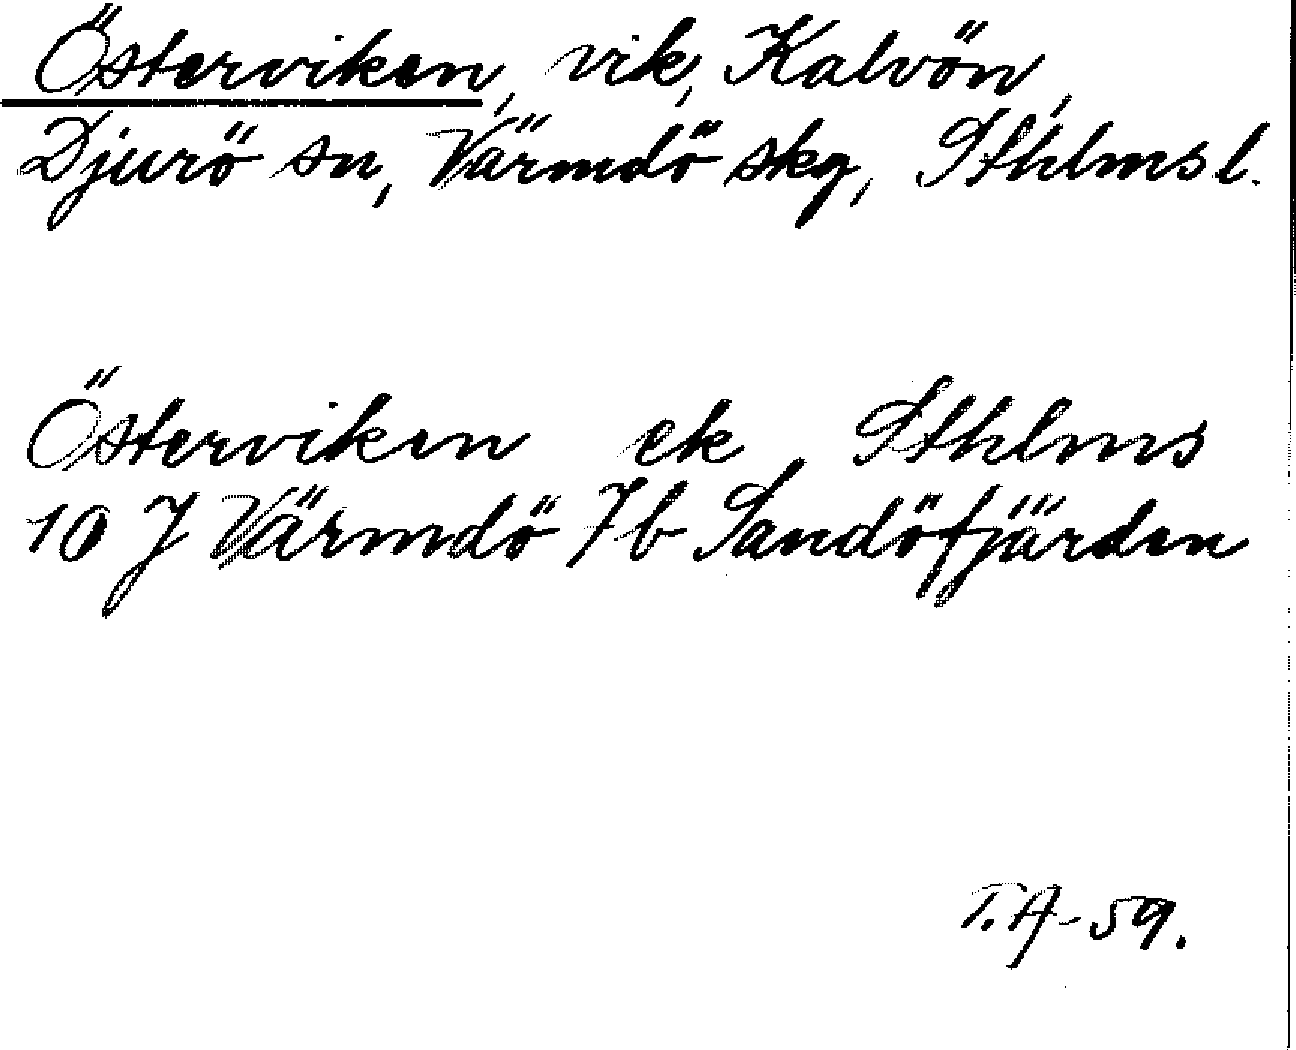 Österviken, vik, Kalvön,
Djurö sn, Värmdö skg, Sthlms l.
Österviken ek Sthlms
10 J Värmdö 7b Sandöfjärden
T.A-59.